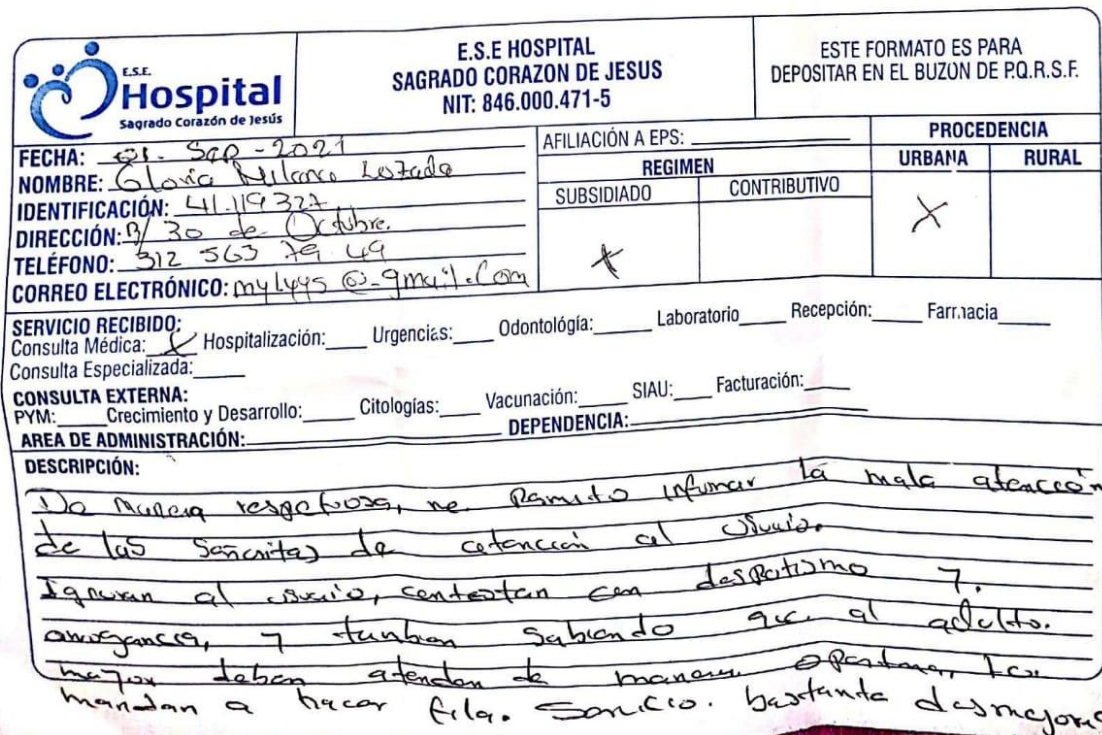 E.S.E.
Hospital
Sagrado Corazón de Jesús
E.S.E HOSPITAL
SAGRADO CORAZON DE JESUS
NIT: 846.000.471-5
ESTE FORMATO ES PARA
DEPOSITAR EN EL BUZON DE P.Q.R.S.F.
FECHA: 01. Sep - 2021
NOMBRE: Gloria Milano Lozada
IDENTIFICACIÓN: 41.119.327
DIRECCIÓN: B/ 30 de Octubre.
TELÉFONO: 312 563 79 49
CORREO ELECTRÓNICO: mylyys @ gmail.com
AFILIACIÓN A EPS:
REGIMEN
SUBSIDIADO CONTRIBUTIVO
X
PROCEDENCIA
URBANA RURAL
X
SERVICIO RECIBIDO:
Consulta Médica: X Hospitalización: Urgencias: Odontológía: Laboratorio Recepción: Farmacia
Consulta Especializada:
CONSULTA EXTERNA:
PYM: Crecimiento y Desarrollo: Citologías: Vacunación: SIAU: Facturación:
AREA DE ADMINISTRACIÓN: DEPENDENCIA:
DESCRIPCIÓN:
De manera respetuosa, me Permito informar la mala atención
de las Señoritas de atención al usuario.
Ignoran al usuario, contestan con despotismo y.
arrogancia, y tanbien Sabiendo que al adulto.
mayor deben atender de manera oportuna, Los
mandan a hacer fila. Servicio. bastante desmejora